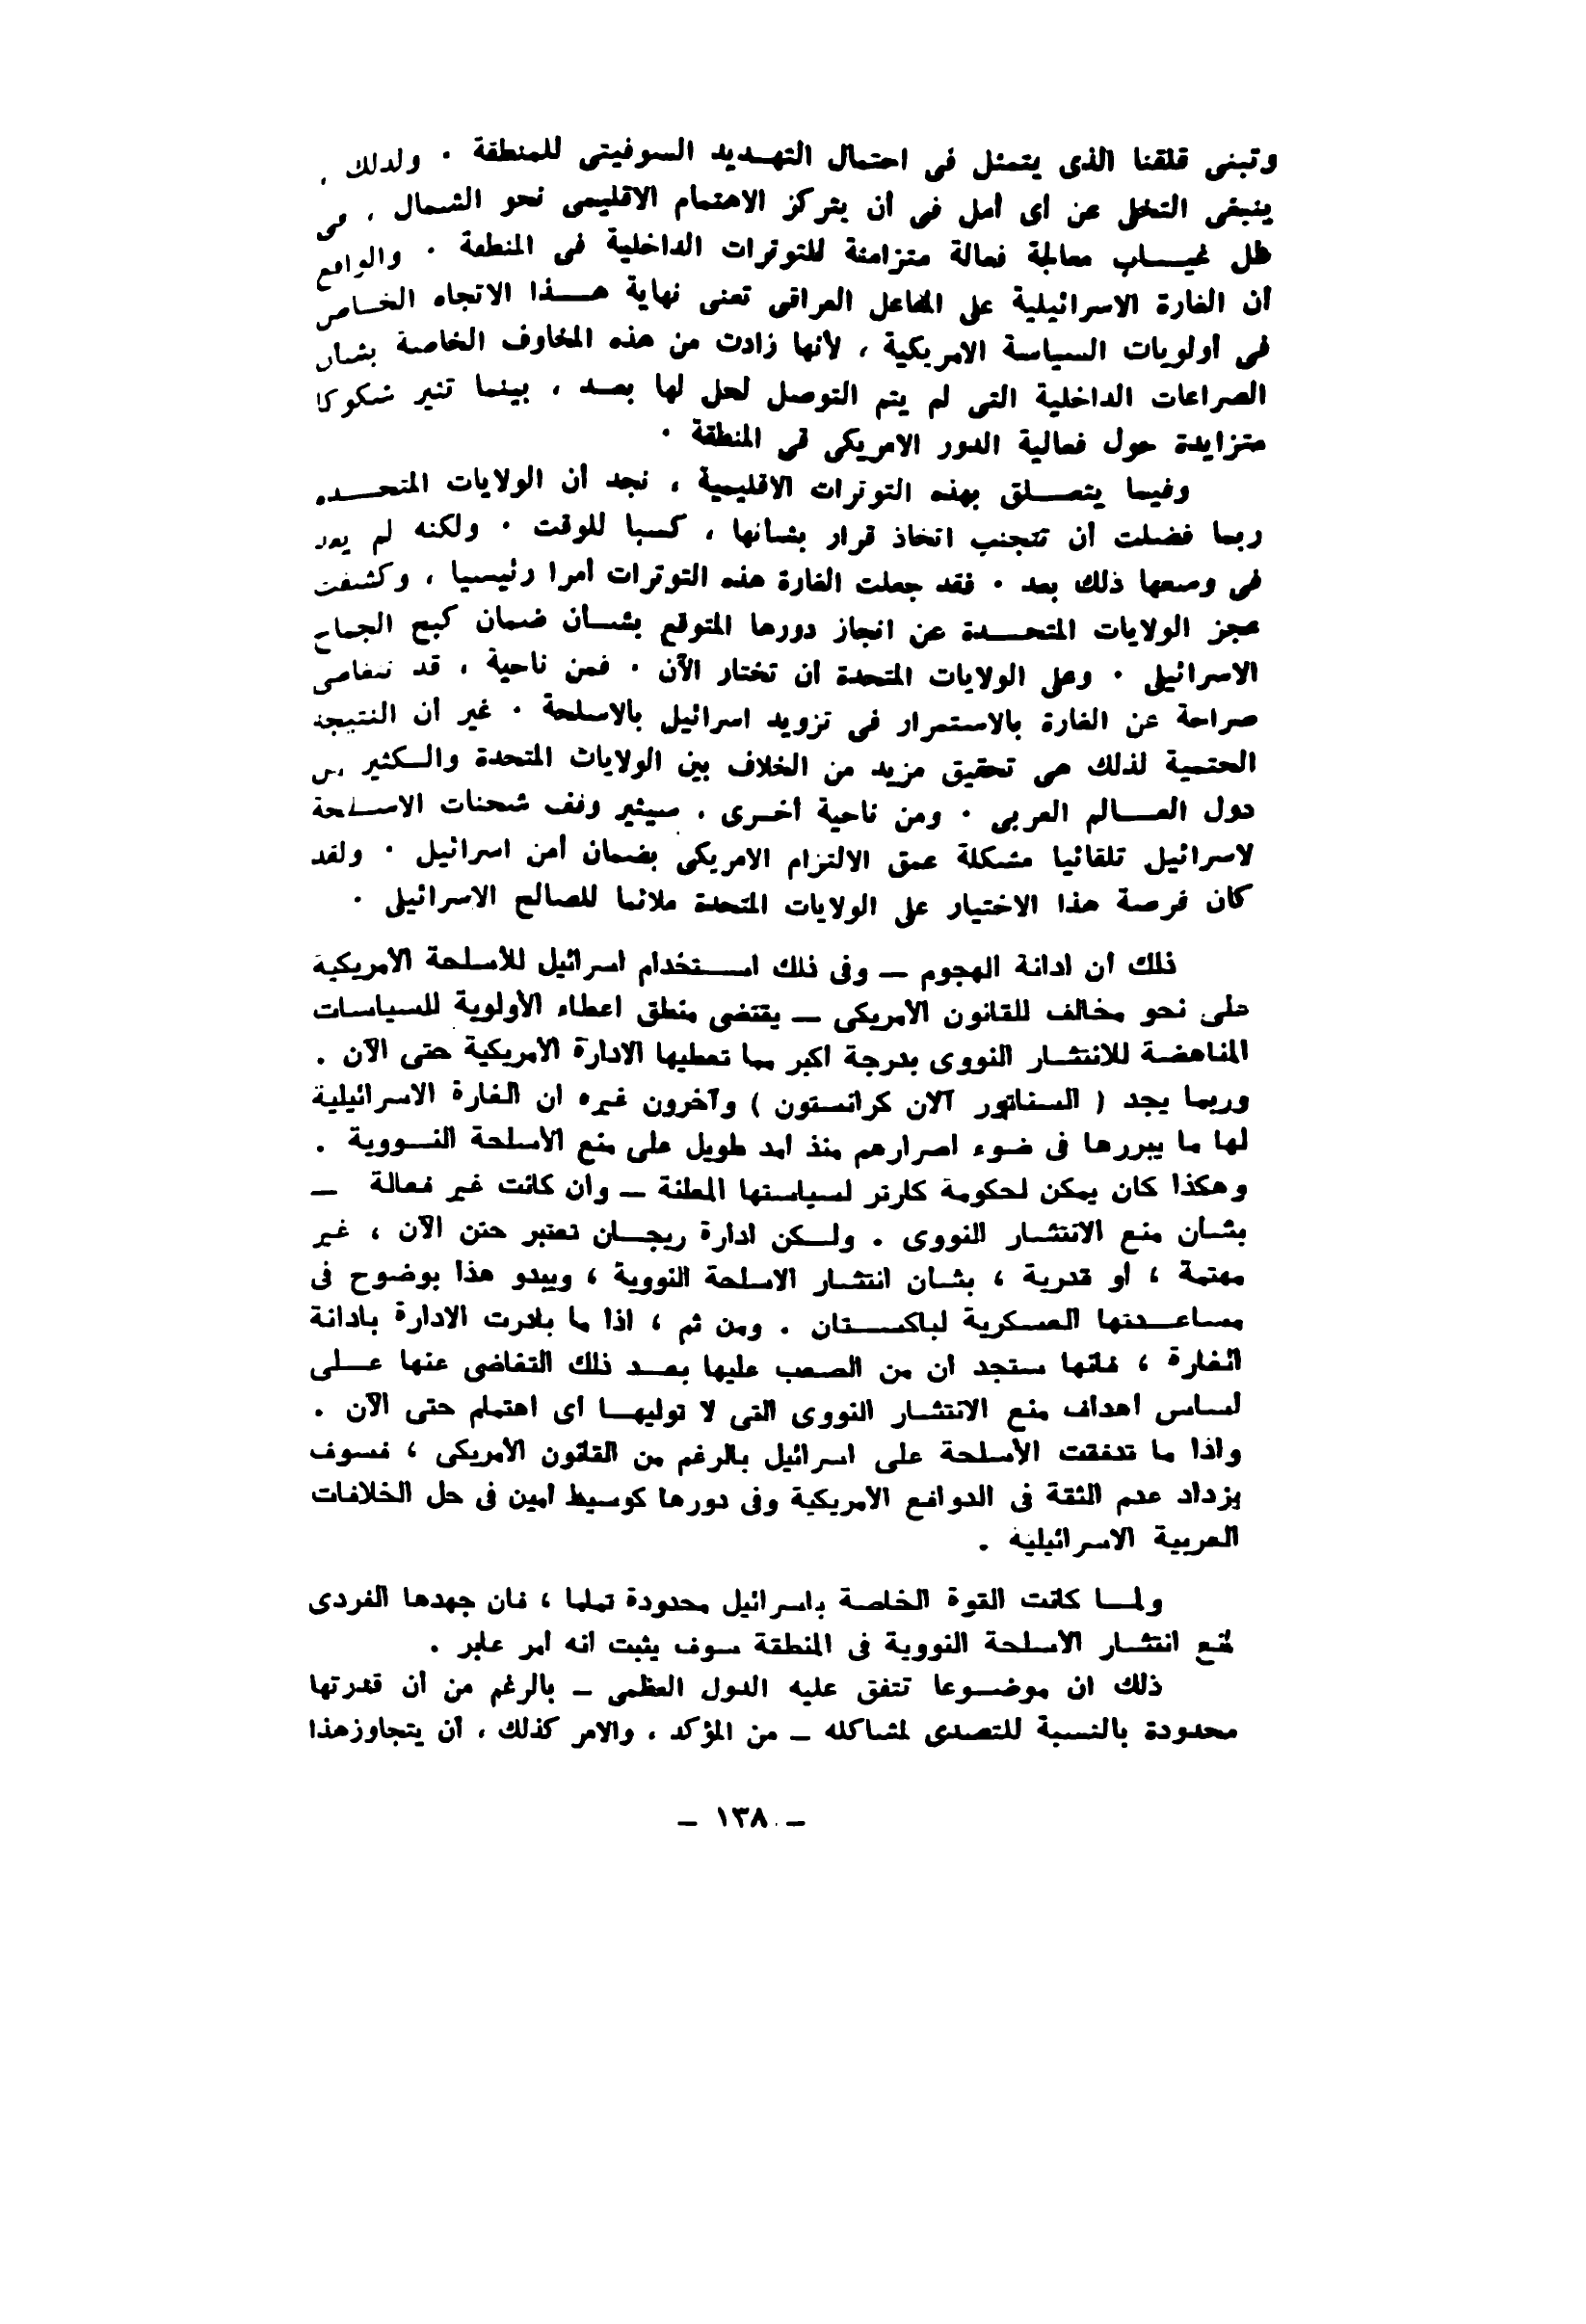 وتبنى قلقنا الذى يتمثل فى احتمال التهــديد السوفيتى للمنطقة ٠ ولذلك ،
ينبغى التخلى عن أى أمل فى أن يتركز الاهتمام الاقليمى نحو الشمال ، فى
ظل غيـــاب معالجة فعالة متزامنة للتوترات الداخلية فى المنطقة ٠ والواقع
أن الغارة الاسرائيلية على المفاعل العراقى تعنى نهاية هــذا الاتجاه الخـاص
فى أولويات السياسة الامريكية ، لأنها زادت من هذه المخاوف الخاصة بشأن
الصراعات الداخلية التى لم يتم التوصل لحل لها بعــد ، بينما تثير شكوكا
متزايدة حول فعالية الدور الامريكى فى المنطقة ٠
وفيما يتعـــلق بهذه التوترات الاقليمية ، نجد أن الولايات المتحـــدة
ربما فضلت أن تتجنب اتخاذ قرار بشأنها ، كسبا للوقت ٠ ولكنه لم يعد
فى وسعها ذلك بعد ٠ فقد جعلت الغارة هذه التوترات أمرا رئيسيا ، وكشفت
عجز الولايات المتحــدة عن انجاز دورها المتوقع بشــأن ضمان كبح الجماح
الاسرائيلى ٠ وعلى الولايات المتحدة أن تختار الآن ٠ فمن ناحية ، قد تتغاضى
صراحة عن الغارة بالاستمرار فى تزويد اسرائيل بالاسلحة ٠ غير أن النتيجة
الحتمية لذلك هى تحقيق مزيد من الخلاف بين الولايات المتحدة والــكثير من
دول العـــالم العربى ٠ ومن ناحية أخــرى ، سيثير وقف شحنات الاســلحة
لاسرائيل تلقائيا مشكلة عمق الالتزام الامريكى بضمان أمن اسرائيل ٠ ولقد
كان فرصة هذا الاختيار على الولايات المتحدة ملائما للصالح الاسرائيلى ٠
ذلك أن ادانة الهجوم ــ وفى ذلك اســتخدام اسرائيل للأسلحة الأمريكية
على نحو مخالف للقانون الأمريكى ــ يقتضى منطق اعطاء الأولوية للسياسات
المناهضة للانتشــار النووى بدرجة اكبر مما تعطيها الادارة الأمريكية حتى الآن .
وربما يجد ( السناتور آلان كرانستون ) وآخرون غيره ان الغارة الاسرائيلية
لها ما يبررها فى ضوء اصرارهم منذ امد طويل على منع الأسلحة النــووية .
وهكذا كان يمكن لحكومة كارتر لسياستها المعلنة ــ وان كانت غير فعالة ــ
بشــأن منع الانتشــار النووى . ولــكن ادارة ريجــان تعتبر حتن الآن ، غير
مهتمة ، أو قدرية ، بشــان انتشــار الاسلحة النووية ، ويبدو هذا بوضوح فى
مساعــدتها العسكرية لباكســـتان . ومن ثم ، اذا ما بادرت الادارة بادانة
الغارة ، فانها ستجد ان من الصعب عليها بعــد ذلك التغاضى عنها عــلى
أساس اهداف منع الانتشــار النووى التى لا توليهــا أى اهتمام حتى الآن .
واذا ما تدفقت الأسلحة على اسرائيل بالرغم من القانون الأمريكى ، فسوف
يزداد عدم الثقة فى الدوافع الامريكية وفى دورها كوسيط امين فى حل الخلافات
العربية الاسرائيلية .
ولمــا كانت القوة الخاصة باسرائيل محدودة تماما ، فان جهدها الفردى
لمنع انتشــار الأسلحة النووية فى المنطقة سوف يثبت انه أمر عابر .
ذلك ان موضــوعا تتفق عليه الدول العظمى ــ بالرغم من أن قدرتها
محدودة بالنسبة للتصدى لمشاكله ــ من المؤكد ، والامر كذلك ، أن يتجاوزهذا
ــ ١٣٨ ــ